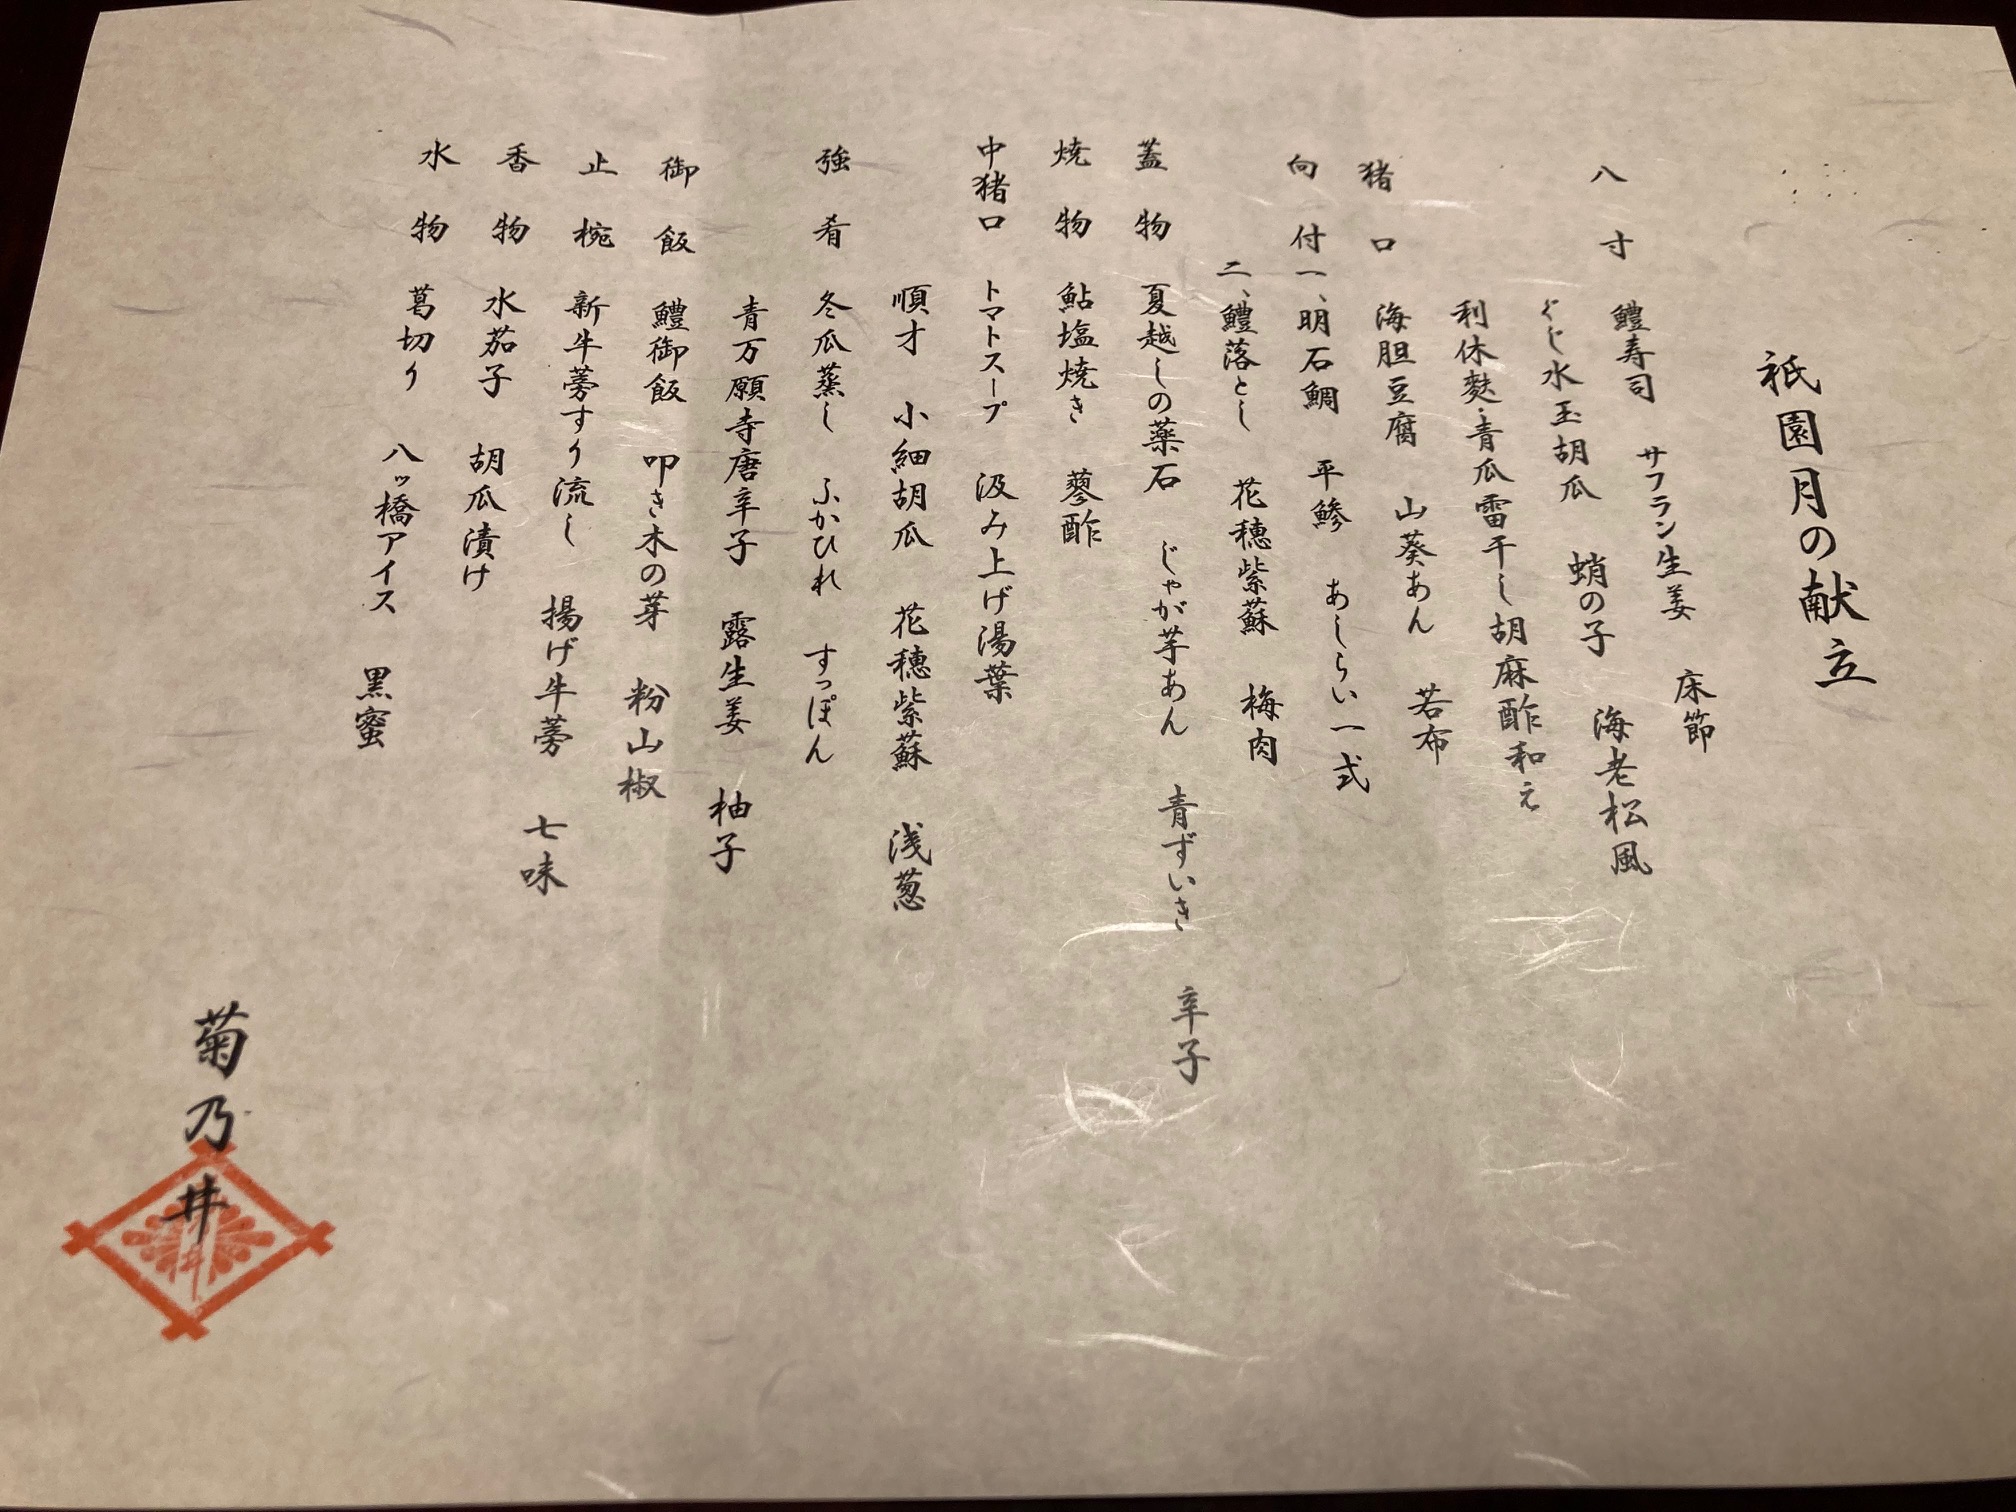 祇園月の献立
八寸 鱧寿司 サフラン生姜 床節
ぐじ水玉胡瓜 蛸の子 海老松風
利休麩・青瓜雷干し胡麻酢和え
猪口 海胆豆腐 山葵あん 若布
向付 一、明石鯛 平鯵 あしらい一式
二、鱧落とし 花穂紫蘇 梅肉
蓋物 夏越しの薬石 じゃが芋あん 青ずいき 辛子
焼物 鮎塩焼き 蓼酢
中猪口 トマトスープ 汲み上げ湯葉
順才 小細胡瓜 花穂紫蘇 浅葱
強肴 冬瓜蒸し ふかひれ すっぽん
青万願寺唐辛子 露生姜 柚子
御飯 鱧御飯 叩き木の芽 粉山椒
止椀 新牛蒡すり流し 揚げ牛蒡 七味
香物 水茄子 胡瓜漬け
水物 葛切り 八ッ橋アイス 黒蜜
菊乃井